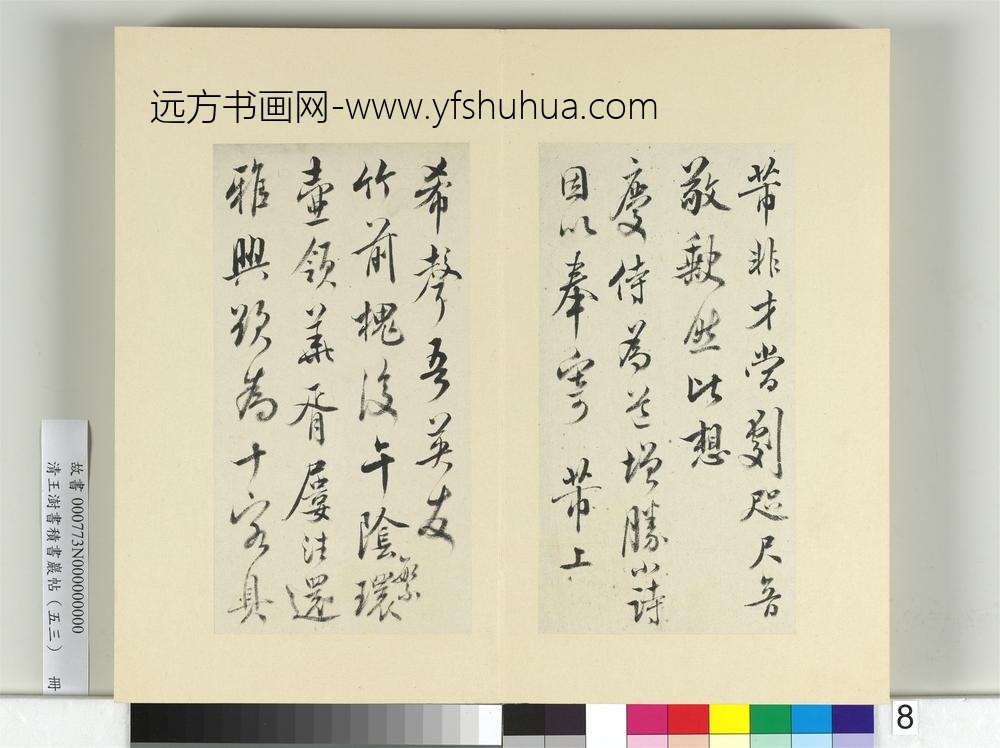 远方书画网-www.yfshuhua.com
芾非才當劇咫尺音
敬歉然比想
慶侍為道增勝小詩
因以奉寄 芾上
希聲吾英友
竹前槐後午陰繁
環
壺領華胥屢往還
雅興欲為十客具
故書 000773N000000000
清王澍書積書巖帖(五三) 冊
8